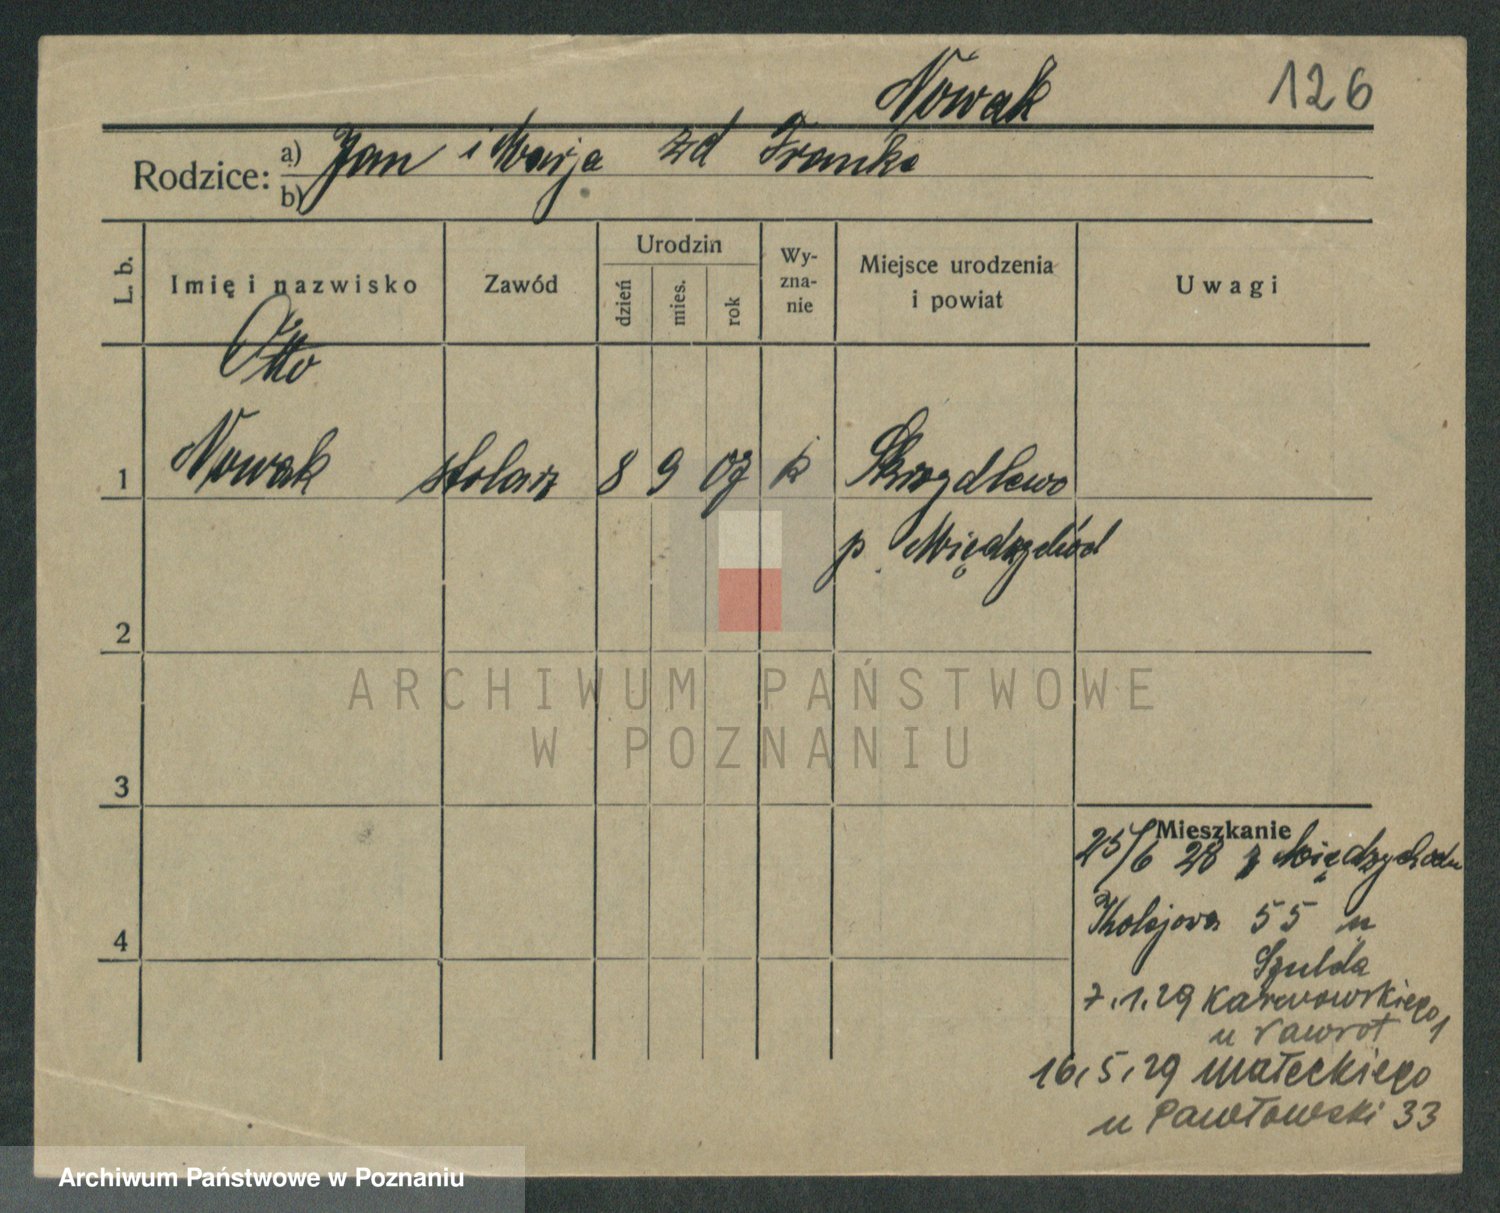 Nowak 126
Rodzice: a) Jan i Marja zd Franke
b)
L. b. Imię i nazwisko Zawód Urodzin dzień mies. rok Wy-zna-nie Miejsce urodzenia i powiat Uwagi
Otto
1 Nowak stolarz 8 9 07 k Skrzydlewo
p. Międzychód
2
3
4
Mieszkanie
25/6 28 z Międzychodu
Kolejowa 55 u
Szulda
7.1.29 Karwowskiego 1
u Nawrot
16.5.29 Małeckiego
u Pawłowski 33
ARCHIWUM PAŃSTWOWE
W POZNANIU
Archiwum Państwowe w Poznaniu